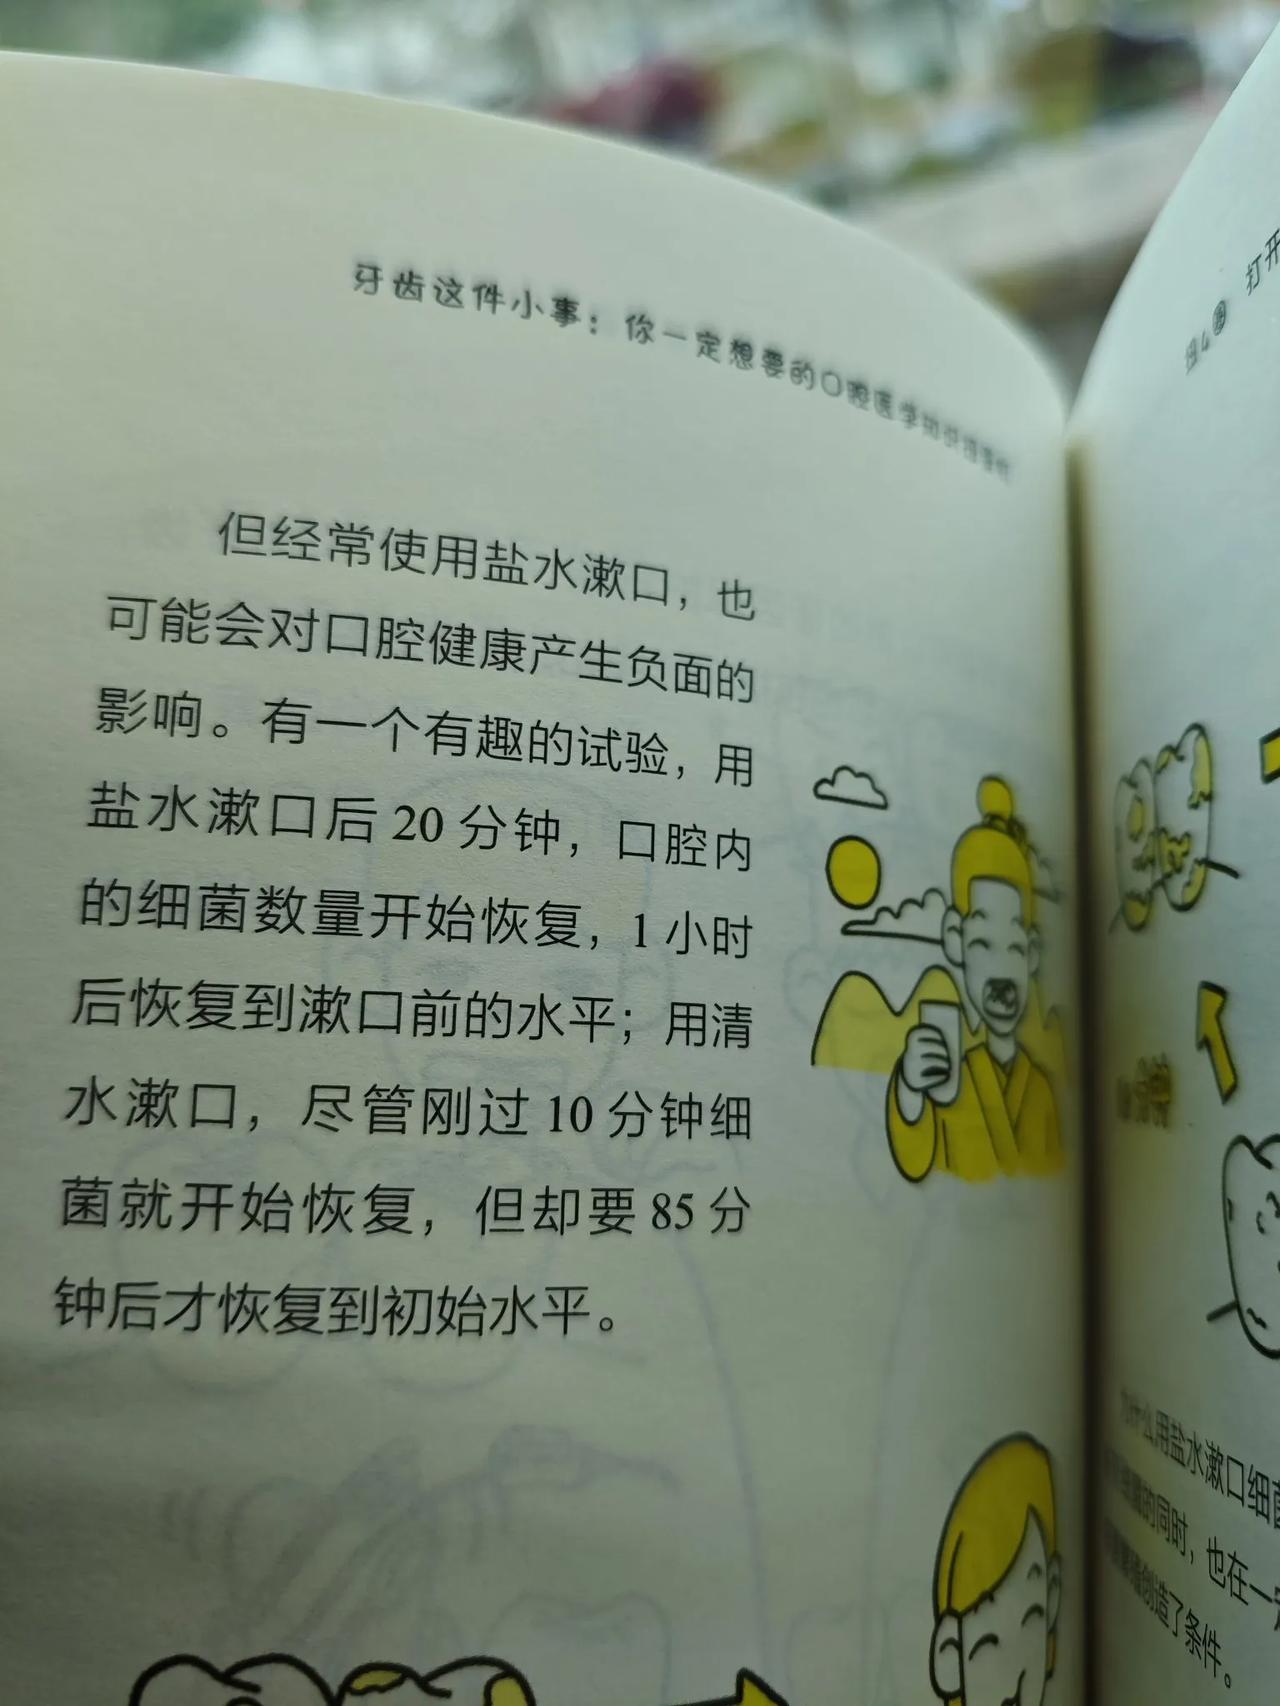 牙齿这件小事：你一定想要的口腔医学知识
但经常使用盐水漱口，也
可能会对口腔健康产生负面的
影响。有一个有趣的试验，用
盐水漱口后 20 分钟，口腔内
的细菌数量开始恢复，1 小时
后恢复到漱口前的水平；用清
水漱口，尽管刚过 10 分钟细
菌就开始恢复，但却要 85 分
钟后才恢复到初始水平。
打开
为什么用盐水漱口细菌
的同时，也在一定
创造了条件。